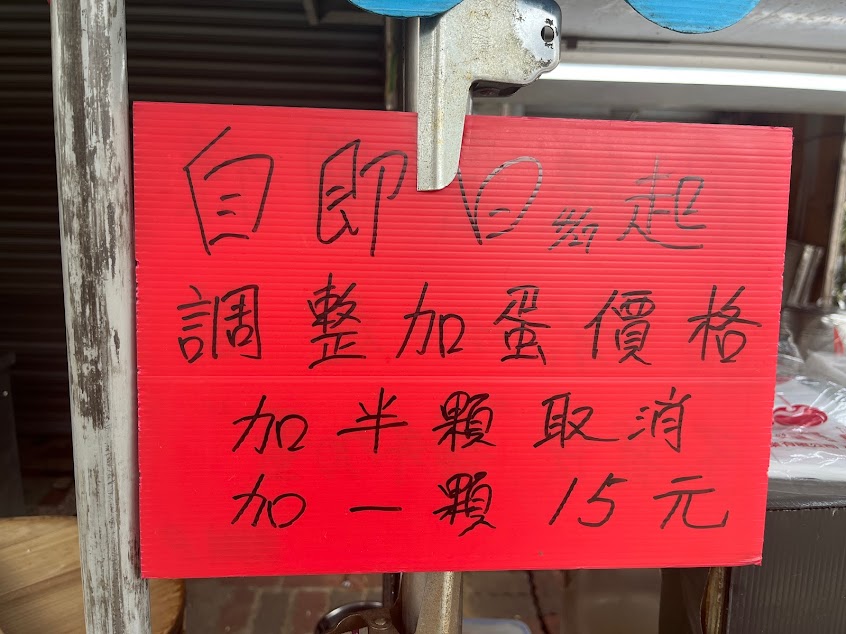 自即日起
調整加蛋價格
加半顆取消
加一顆15元